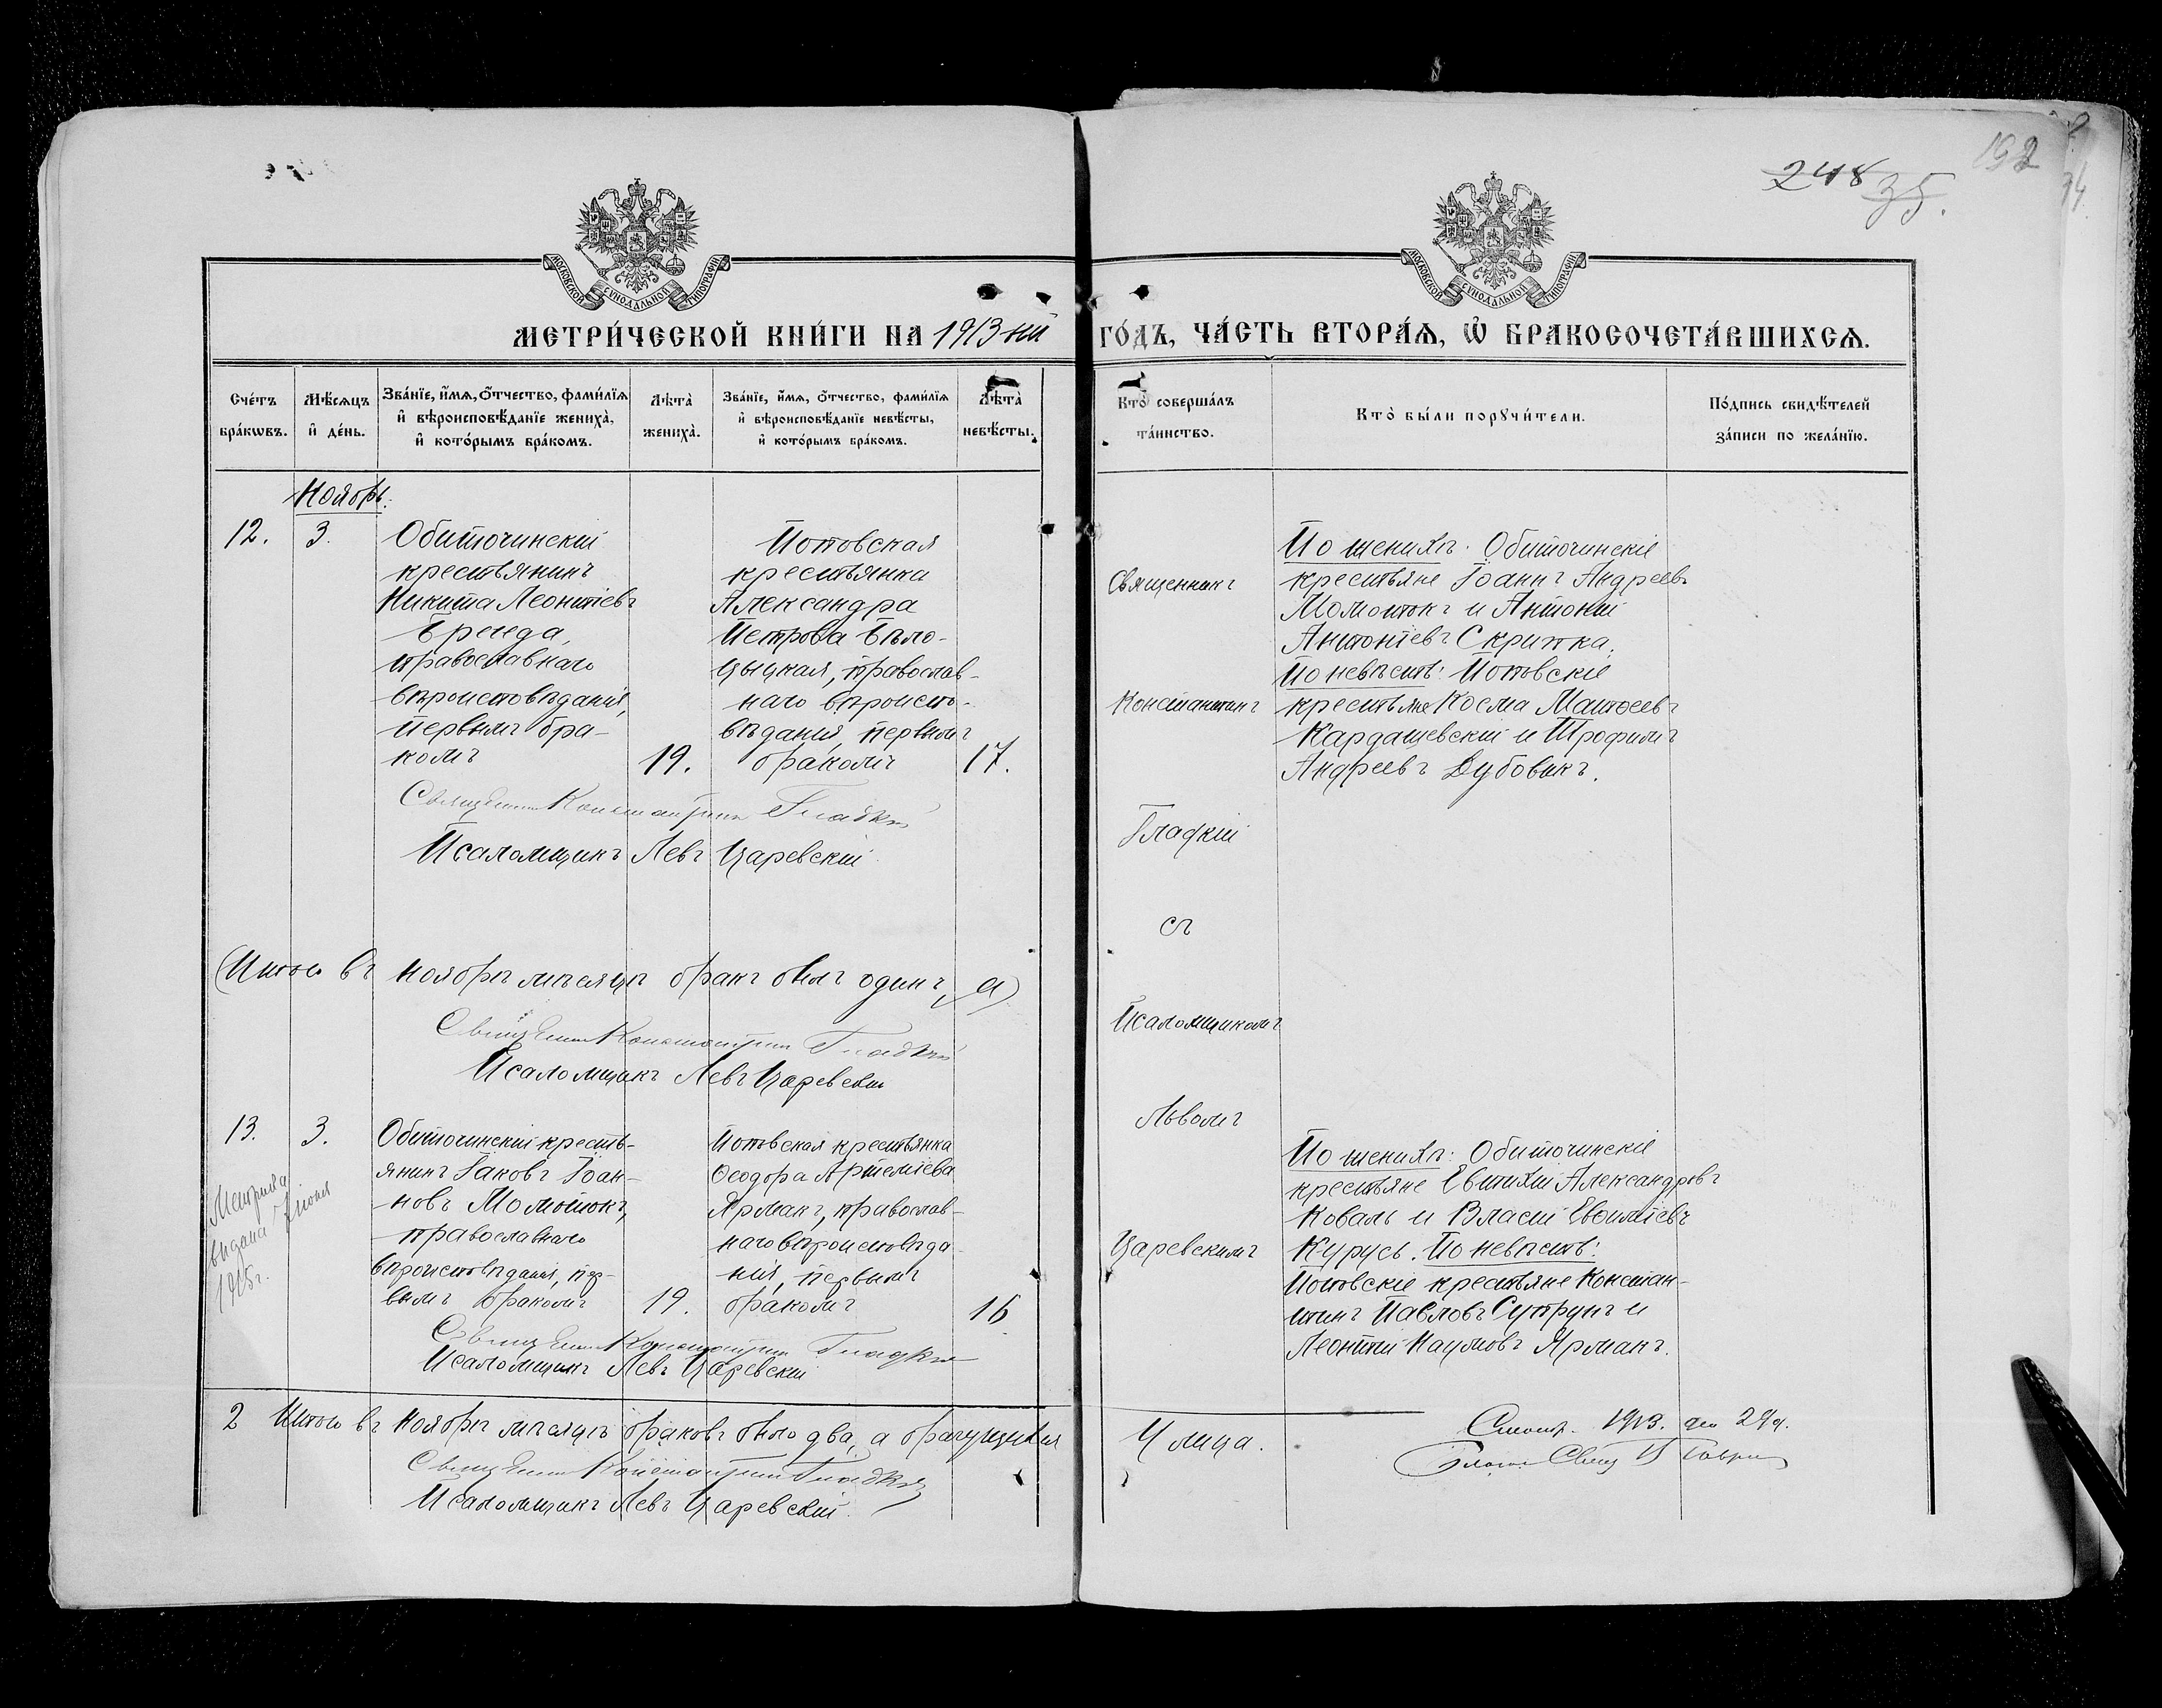 248 35. 192
94
МОСКОВСКОЙ СѴНОДАЛЬНОЙ ТИПОГРАФІИ
МОСКОВСКОЙ СѴНОДАЛЬНОЙ ТИПОГРАФІИ
МЕТРИ́ЧЕСКОЙ КНИ́ГИ НА 1913 ый ГО́ДЪ, ЧА́СТЬ ВТОРА́Ѧ, Ѡ҆ БРАКОСОЧЕТА́ВШИХСѦ.
Сче́тъ бра́кѡвъ.
Мѣ́сѧцъ и҆ де́нь.
Зва́нїе, и҆́мѧ, ѻ҆́тчество, фами́лїѧ
и҆ вѣроисповѣ́данїе жениха̀,
и҆ кото́рымъ бра́комъ.
Лѣта̀ жениха̀.
Зва́нїе, и҆́мѧ, ѻ҆́тчество, фами́лїѧ
и҆ вѣроисповѣ́данїе невѣ́сты,
и҆ кото́рымъ бра́комъ.
Лѣта̀ невѣ́сты.
Кто̀ соверша́лъ та́инство.
Кто̀ бы́ли порꙋчи́тели.
По́дпись свидѣ́телей
за́писи по жела́нїю.
Ноябрь.
12.
3.
Обиточинскій
крестьянинъ
Никита Леонтіевъ
Бренда,
православнаго
вѣроисповѣданія,
первымъ бра-
комъ
19.
Поповская
крестьянка
Александра
Петрова Бѣло-
цыцкая, православ-
наго вѣроиспо-
вѣданія, первымъ
бракомъ
17.
Священникъ
Константинъ
Гладкій
съ
Псаломщикомъ
Львомъ
Царевскимъ
По женихѣ: Обиточинскіе
крестьяне Іоаннъ Андреевъ
Момотокъ и Антоній
Антоніевъ Скрипка.
По невѣстѣ: Поповскіе
крестьяне Косма Матѳеевъ
Кардашевскій и Трофимъ
Андреевъ Дубовикъ.
Священникъ Константинъ Гладкій
Псаломщикъ Левъ Царевскій
(Итого въ ноябрѣ мѣсяцѣ бракъ былъ одинъ, а)
Священникъ Константинъ Гладкій
Псаломщикъ Левъ Царевскій
13.
3.
Метрика
выдана 7 іюня
1915 г.
Обиточинскій кресть-
янинъ Іаковъ Іоан-
новъ Момотокъ,
православнаго
вѣроисповѣданія, пер-
вымъ бракомъ
19.
Поповская крестьянка
Ѳеодора Артеміева
Ярмакъ, православ-
наго вѣроисповѣда-
нія, первымъ
бракомъ
16
По женихѣ: Обиточинскіе
крестьяне Евтихій Александровъ
Коваль и Власій Евѳиміевъ
Курусь. По невѣстѣ:
Поповскіе крестьяне Констан-
тинъ Павловъ Супрунъ и
Леонтій Наумовъ Ярмакъ.
Священникъ Константинъ Гладкій
Псаломщикъ Левъ Царевскій
2 Итого въ ноябрѣ мѣсяцѣ браковъ было два, а брачущихся
4 лица.
Священникъ Константинъ Гладкій
Псаломщикъ Левъ Царевскій.
Смотр. 1913. дек 29 д.